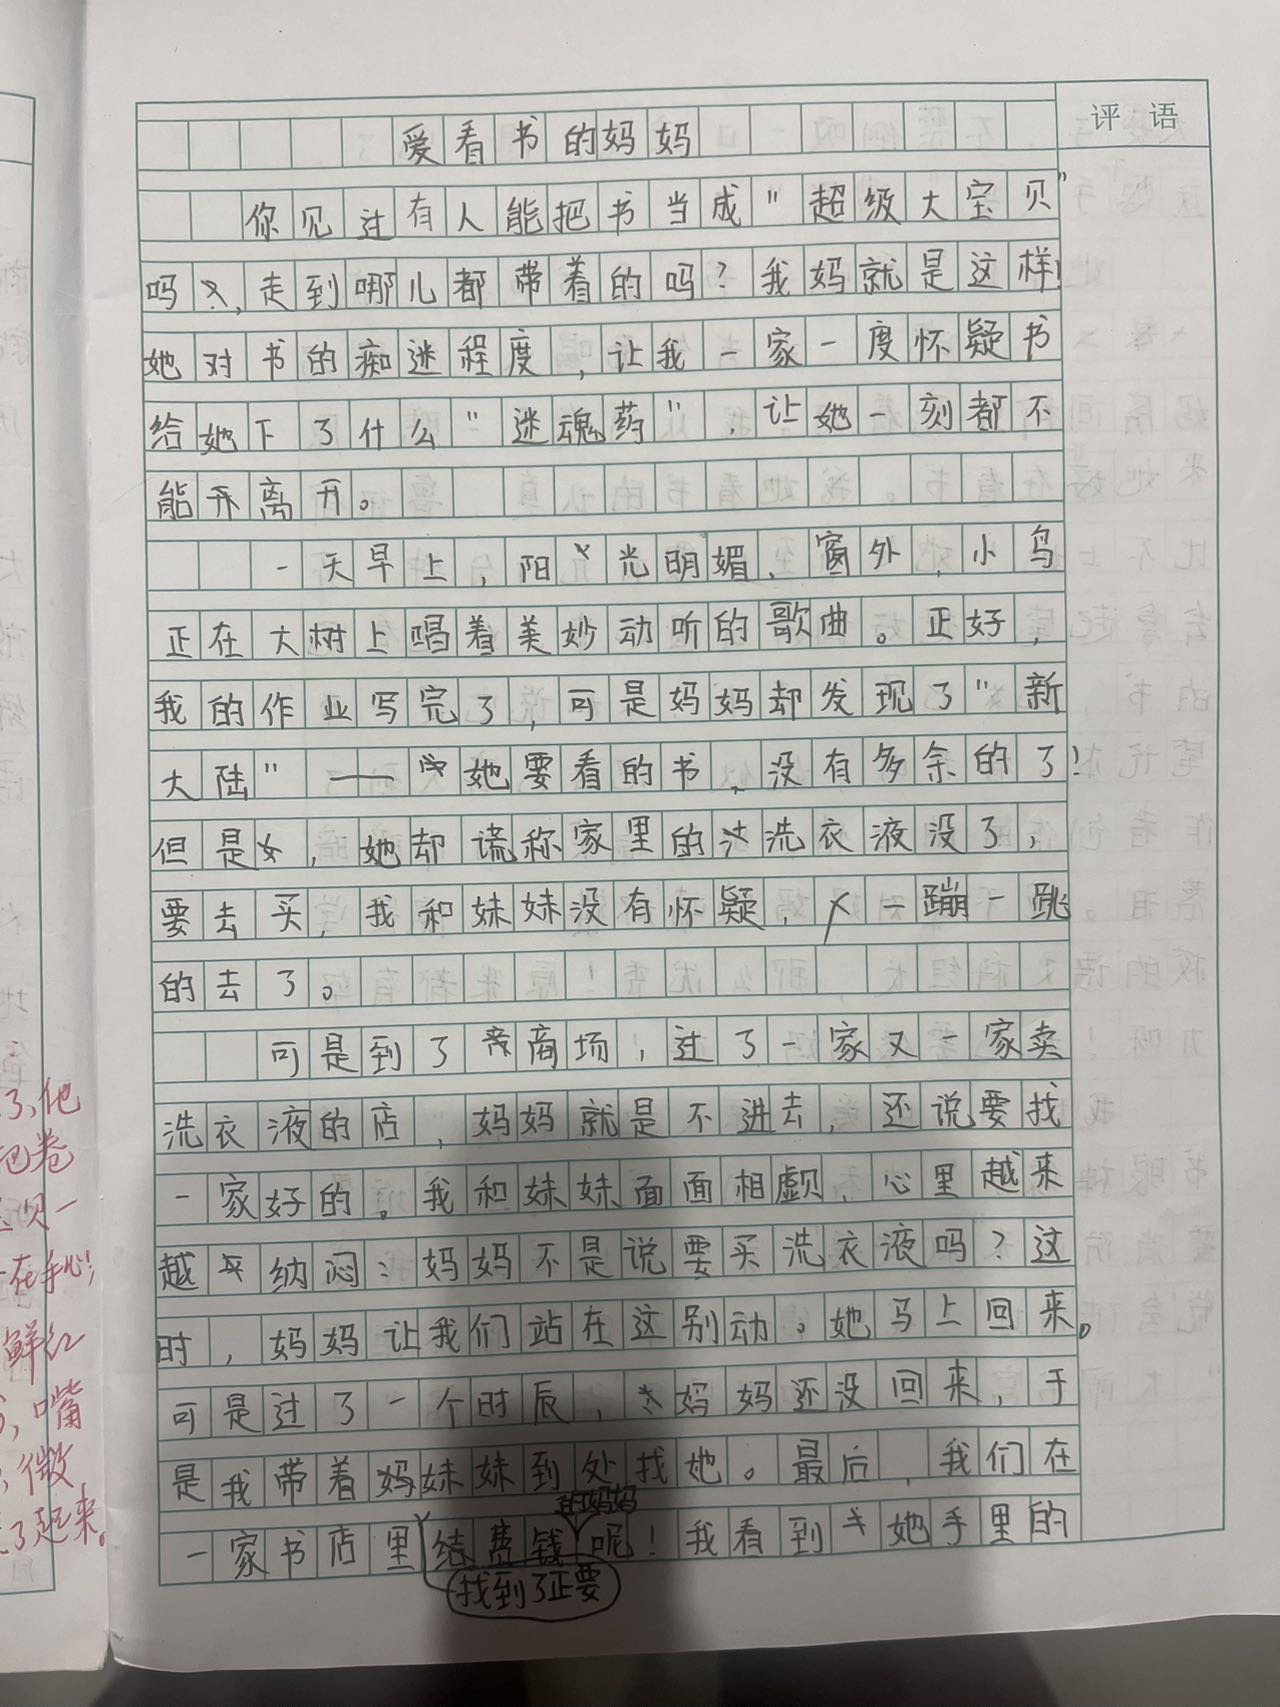 评语
爱看书的妈妈
你见过有人能把书当成"超级大宝贝"
吗,走到哪儿都带着的吗?我妈就是这样!
她对书的痴迷程度,让我一家一度怀疑书
给她下了什么"迷魂药",让她一刻都不
能离开。
一天早上,阳光明媚,窗外,小鸟
正在大树上唱着美妙动听的歌曲。正好,
我的作业写完了,可是妈妈却发现了"新
大陆"——她要看的书,没有多余的了!
但是,她却谎称家里的洗衣液没了,
要去买,我和妹妹没有怀疑,一蹦一跳
的去了。
可是到了商场,过了一家又一家卖
洗衣液的店,妈妈就是不进去,还说要找
一家好的。我和妹妹面面相觑,心里越来
越纳闷:妈妈不是说要买洗衣液吗?这
时,妈妈让我们站在这别动。她马上回来。
可是过了一个时辰,妈妈还没回来,于
是我带着妹妹到处找她。最后,我们在
一家书店里找到了正要结费钱的妈妈呢!我看到她手里的
了,他
卷
贝一
在手心!
鲜红
,嘴
,微
了起来。